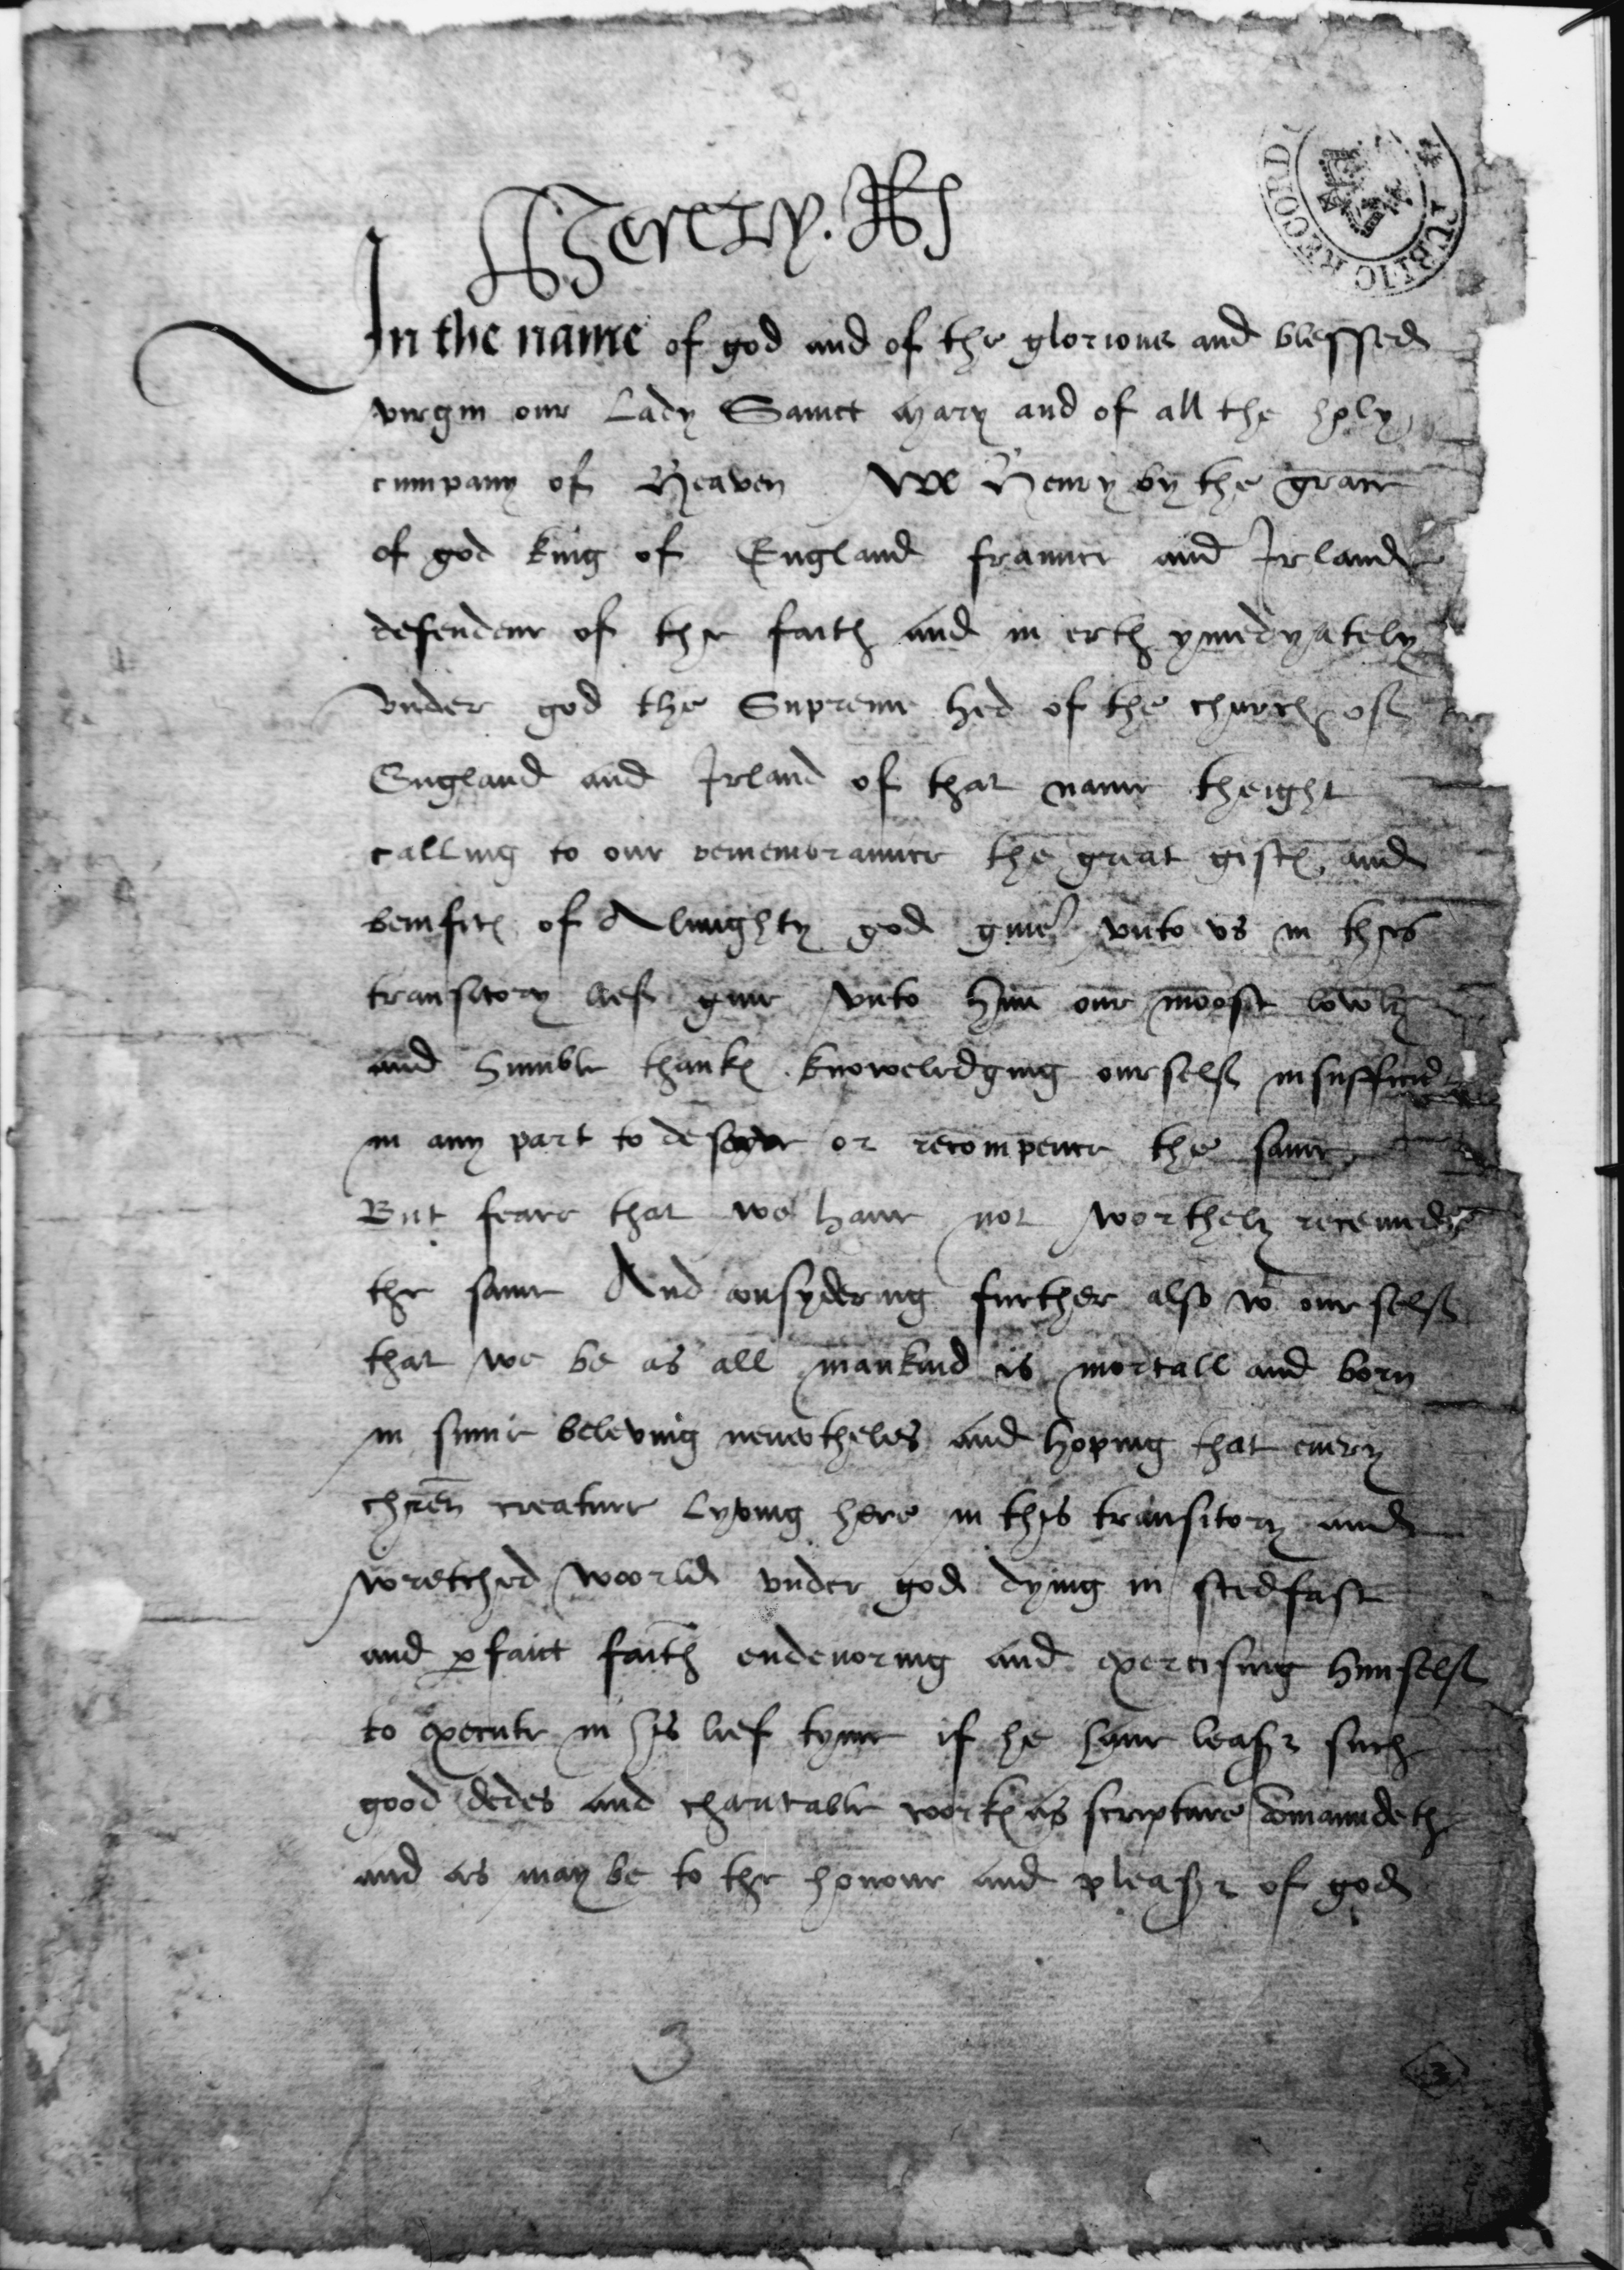 Henry R
PUBLIC RECORD
In the name of god and of the glorious and blessed
virgin our Lady Sainct Mary and of all the holy
cumpany of Heaven We Henry by the grace
of god king of England fraunce and Irland
defendeur of the faith and in erth ymedyately
vnder god the Supreme hed of the church of
England and Irland of that name theight
calling to our remembraunce the great giftes and
benefites of Almighty god given vnto vs in this
transitory lief give vnto him our moost lowly
and humble thankes knowledging ourself insufficient
in any part to deserve or recompence the same
But feare that we haue not worthely receiued
the same And consydering further also wt ourself
that we be as all mankind is mortall and born
in sinne beleving neuertheles and hoping that euery
chren creature lyving here in this transitory and
wretched woorld vnder god dying in stedfast
and perfaict faith endevoring and exercising himself
to execute in his lief tyme if he haue leasr such
good dedes and charitable workes as scripture comaundeth
and as may be to the honour and pleasr of god
3
3